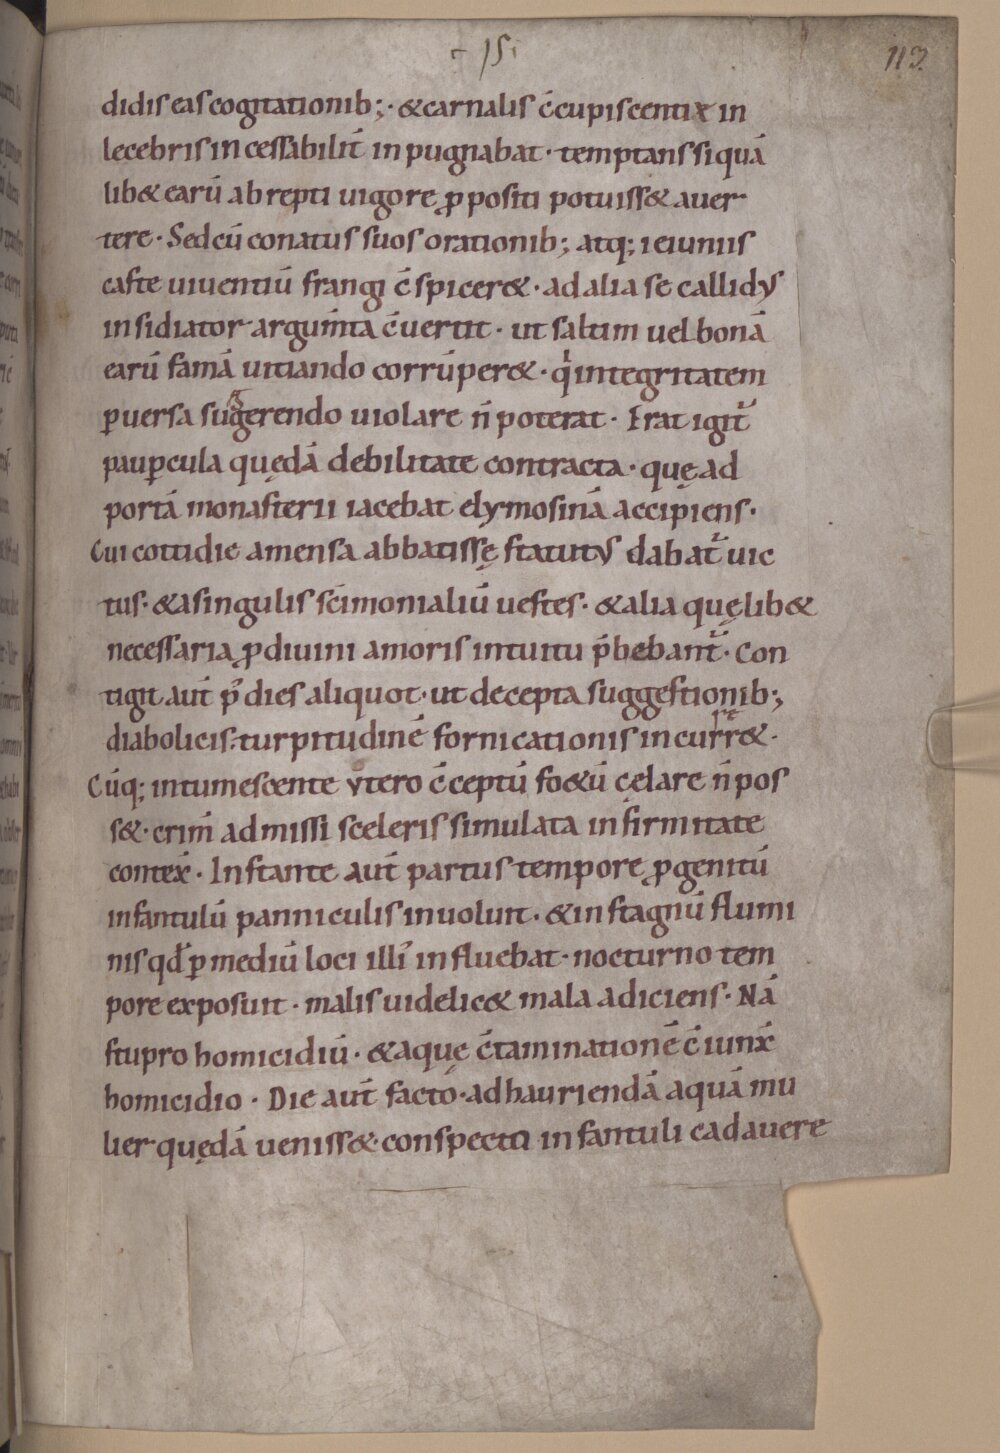 113
didis eas cogitationib;· &carnalis c̄cupiscentiæ in
lecebris incessabilit̄ inpugnabat· temptans siquā
lib& earū abrepti uigore ꝓpositi potuiss& auer
tere· Sed cū conatus suos orationib; atq; ieiuniis
caste uiuentiū frangi c̄spicer&· ad alia se callidꝰ
insidiator argum̄ta c̄uertit· ut saltim uel bonā
earū famā uitiando corrūper&· qͥ integritatem
ꝑuersa sugerendo uiolare n̄ poterat· Erat igit᷑
pauꝑcula quędā debilitate contracta· quę ad
portā monasterii iacebat elymosinā accipiens·
Cui cottidie amensa abbatissę statutꝰ dabat᷑ uic
tus· &asingulis sc̄imonialiū uestes· &alia quęlib&
necessaria ꝓ diuini amoris intuitu p̄bebant᷑· Con
tigit aut̄ p᷒ dies aliquot· ut decepta suggestionib;
diabolicis· turpitudinē fornicationis incurr&·
Cūq; intumescente vtero c̄ceptū fo&ū cęlare n̄ pos
s&· crim̄ admissi sceleris simulata infirmitate
contex̄· Instante aut̄ partus tempore ꝓgenitū
infantulū panniculis inuoluit· &in stagnū flumi
nis qd̄ ꝑ mediū loci illi᷒ influebat· nocturno tem
pore exposuit· malis uidelic& mala adiciens· Nā
stupro homicidiū· &aquę c̄taminationē c̄iunx̄
homicidio· Die aut̄ facto· ad hauriendā aquā mu
lier quędā ueniss&· conspecti infantuli cadauere